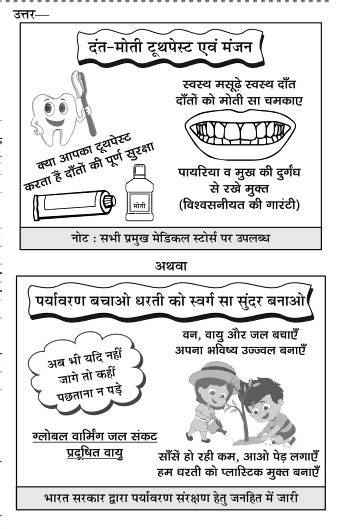 उत्तर—
दंत-मोती टूथपेस्ट एवं मंजन
स्वस्थ मसूढ़े स्वस्थ दाँत
दाँतों को मोती सा चमकाए
क्या आपका टूथपेस्ट
करता है दाँतों की पूर्ण सुरक्षा
मोती
पायरिया व मुख की दुर्गंध
से रखे मुक्त
(विश्वसनीयता की गारंटी)
नोट : सभी प्रमुख मेडिकल स्टोर्स पर उपलब्ध
अथवा
पर्यावरण बचाओ धरती को स्वर्ग सा सुंदर बनाओ
वन, वायु और जल बचाएँ
अपना भविष्य उज्ज्वल बनाएँ
अब भी यदि नहीं
जागे तो कहीं
पछताना न पड़े
ग्लोबल वार्मिंग जल संकट
प्रदूषित वायु
साँसें हो रही कम, आओ पेड़ लगाएँ
हम धरती को प्लास्टिक मुक्त बनाएँ
भारत सरकार द्वारा पर्यावरण संरक्षण हेतु जनहित में जारी